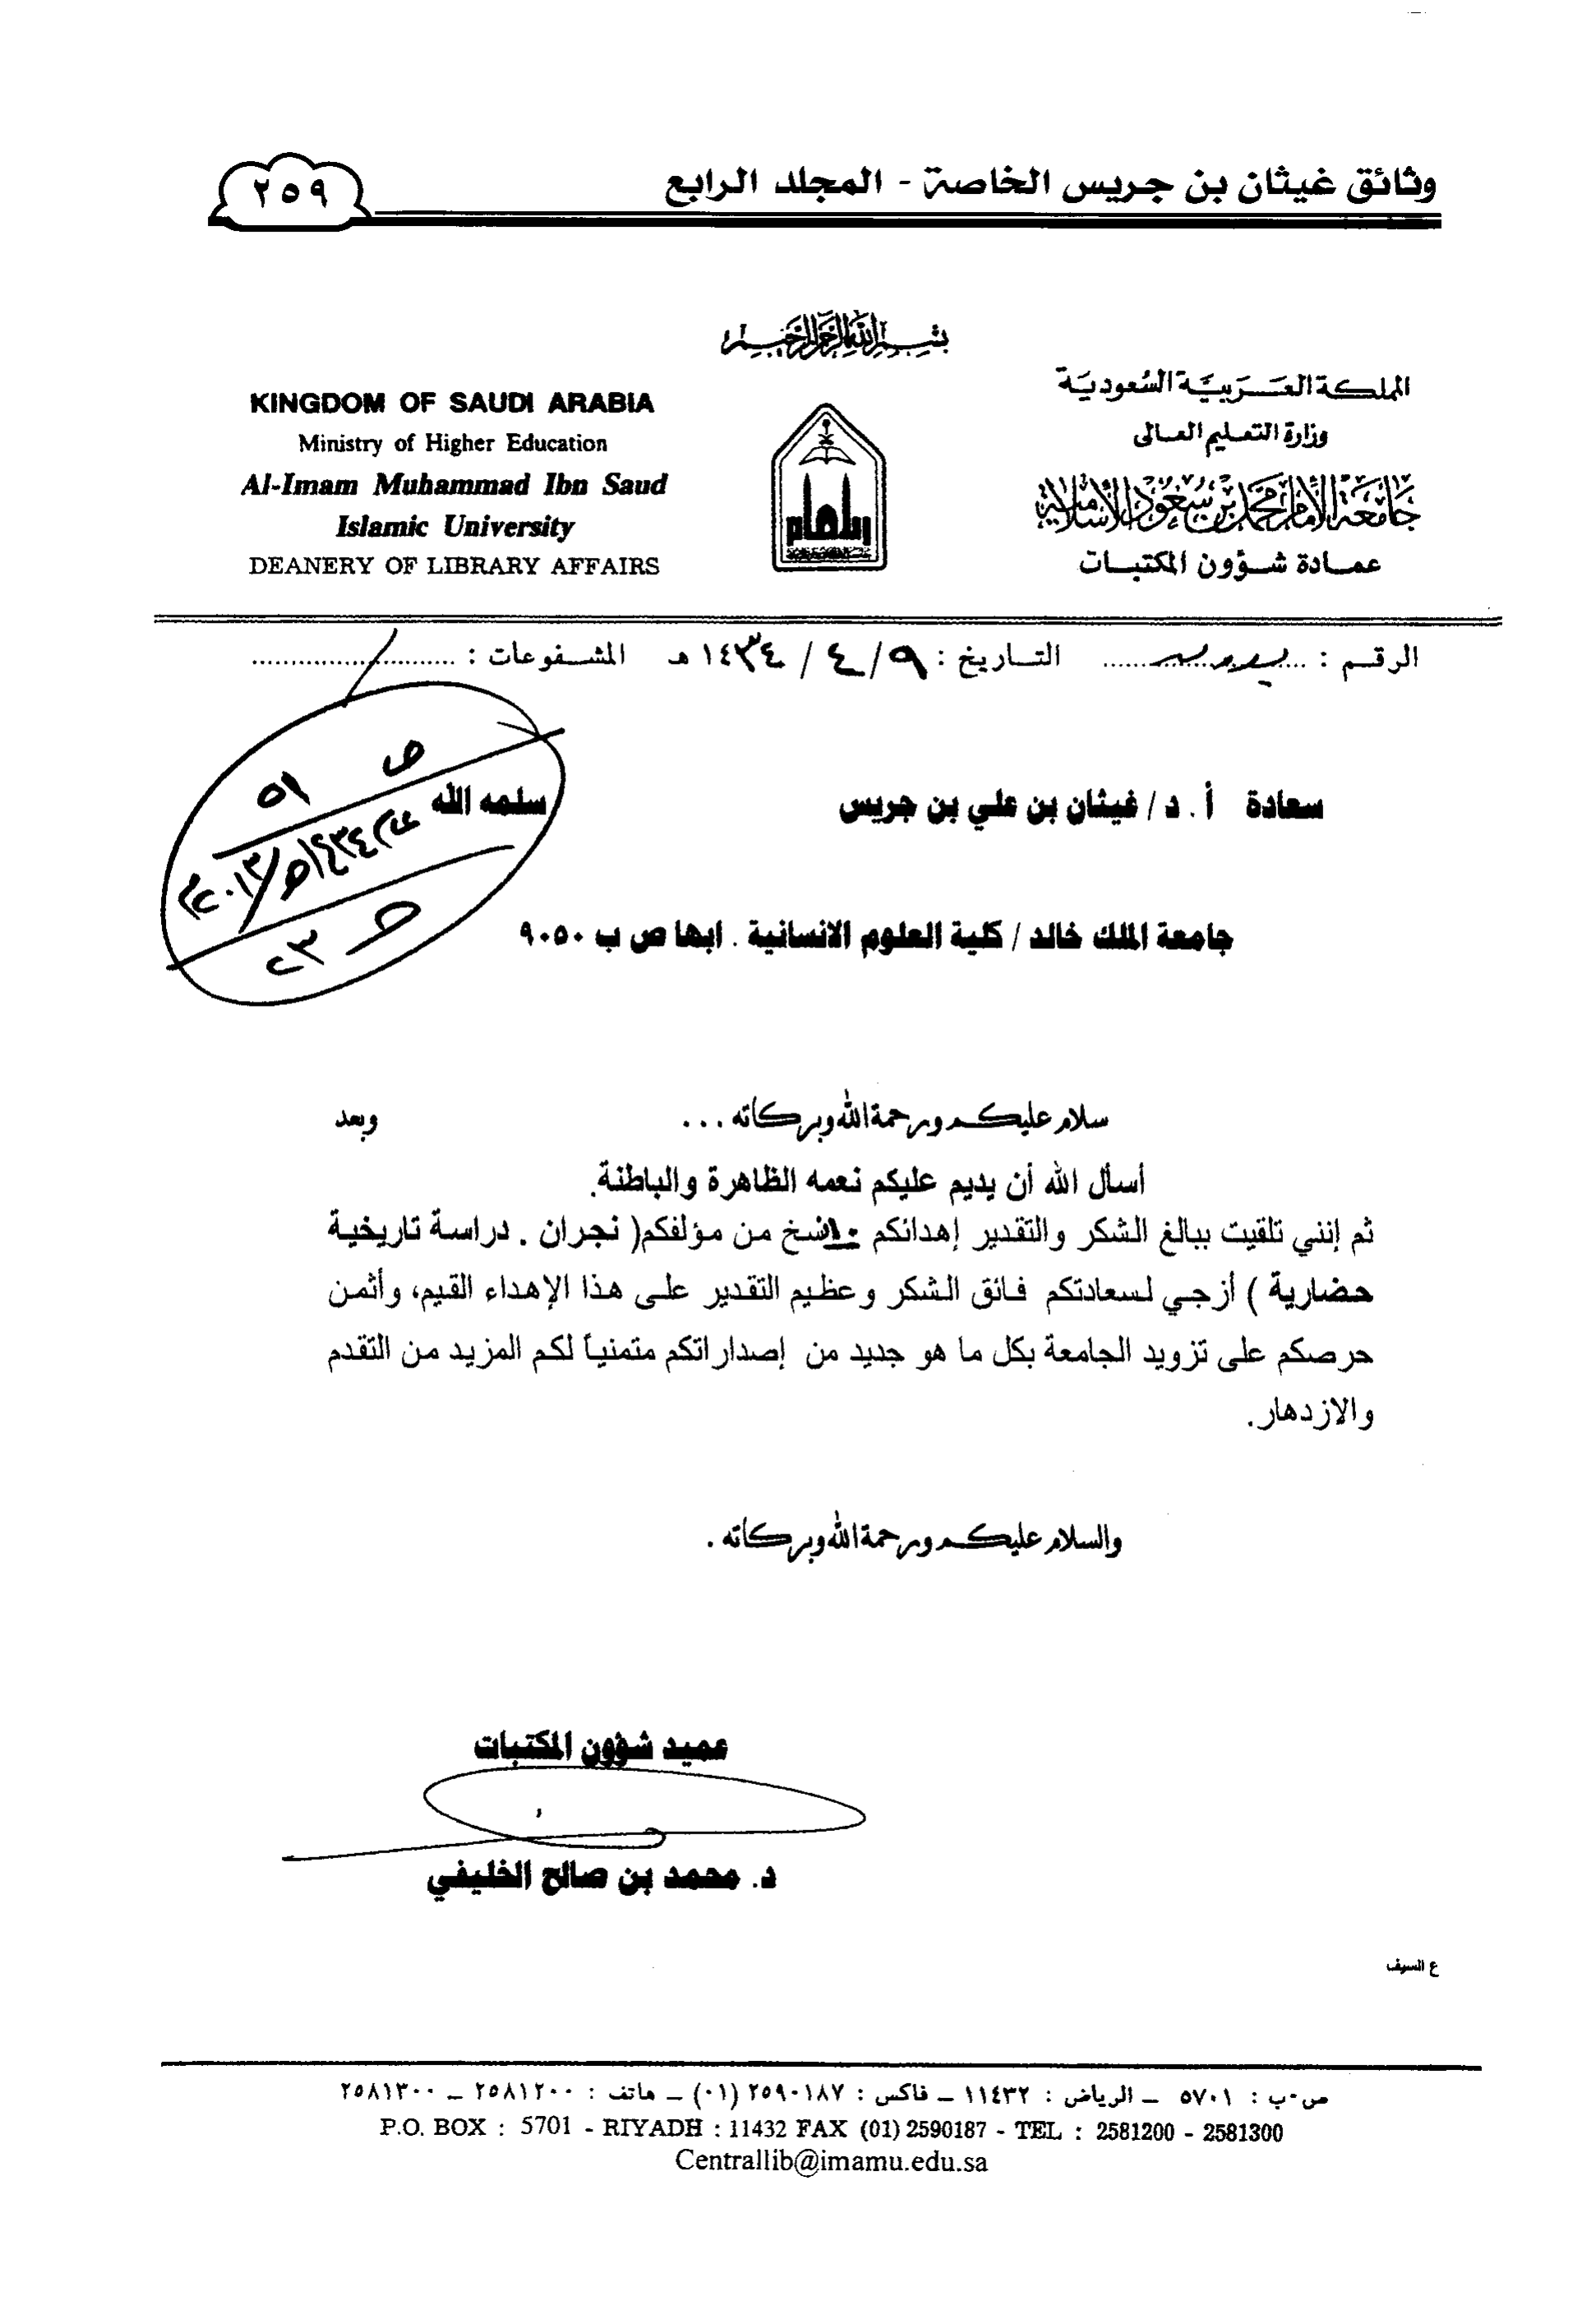 وثائق غيثان بن جريس الخاصة - المجلد الرابع
٢٥٩
بسم الله الرحمن الرحيم
المملكة العربية السعودية
وزارة التعليم العالى
جامعة الإمام محمد بن سعود الإسلامية
عمادة شؤون المكتبات
KINGDOM OF SAUDI ARABIA
Ministry of Higher Education
Al-Imam Muhammad Ibn Saud
Islamic University
DEANERY OF LIBRARY AFFAIRS
الرقم : التاريخ : ٩ / ٤ / ١٤٣٤ هـ المشفوعات :
سعادة أ . د / غيثان بن علي بن جريس سلمه الله
جامعة الملك خالد / كلية العلوم الانسانية . ابها ص ب ٩٠٥٠
سلام عليكم ورحمة الله وبركاته ... وبعد
أسأل الله أن يديم عليكم نعمه الظاهرة والباطنة.
ثم إنني تلقيت ببالغ الشكر والتقدير إهدائكم ١٠نسخ من مؤلفكم( نجران . دراسة تاريخية
حضارية ) أزجي لسعادتكم فائق الشكر وعظيم التقدير على هذا الإهداء القيم، وأثمن
حرصكم على تزويد الجامعة بكل ما هو جديد من إصداراتكم متمنياً لكم المزيد من التقدم
والازدهار.
والسلام عليكم ورحمة الله وبركاته .
عميد شؤون المكتبات
د. محمد بن صالح الخليفي
ع السيف
ص٠ب : ٥٧٠١ – الرياض : ١١٤٣٢ – فاكس : ٢٥٩٠١٨٧ (٠١) – هاتف : ٢٥٨١٢٠٠ – ٢٥٨١٣٠٠
P.O. BOX : 5701 - RIYADH : 11432 FAX (01) 2590187 - TEL : 2581200 - 2581300
Centrallib@imamu.edu.sa